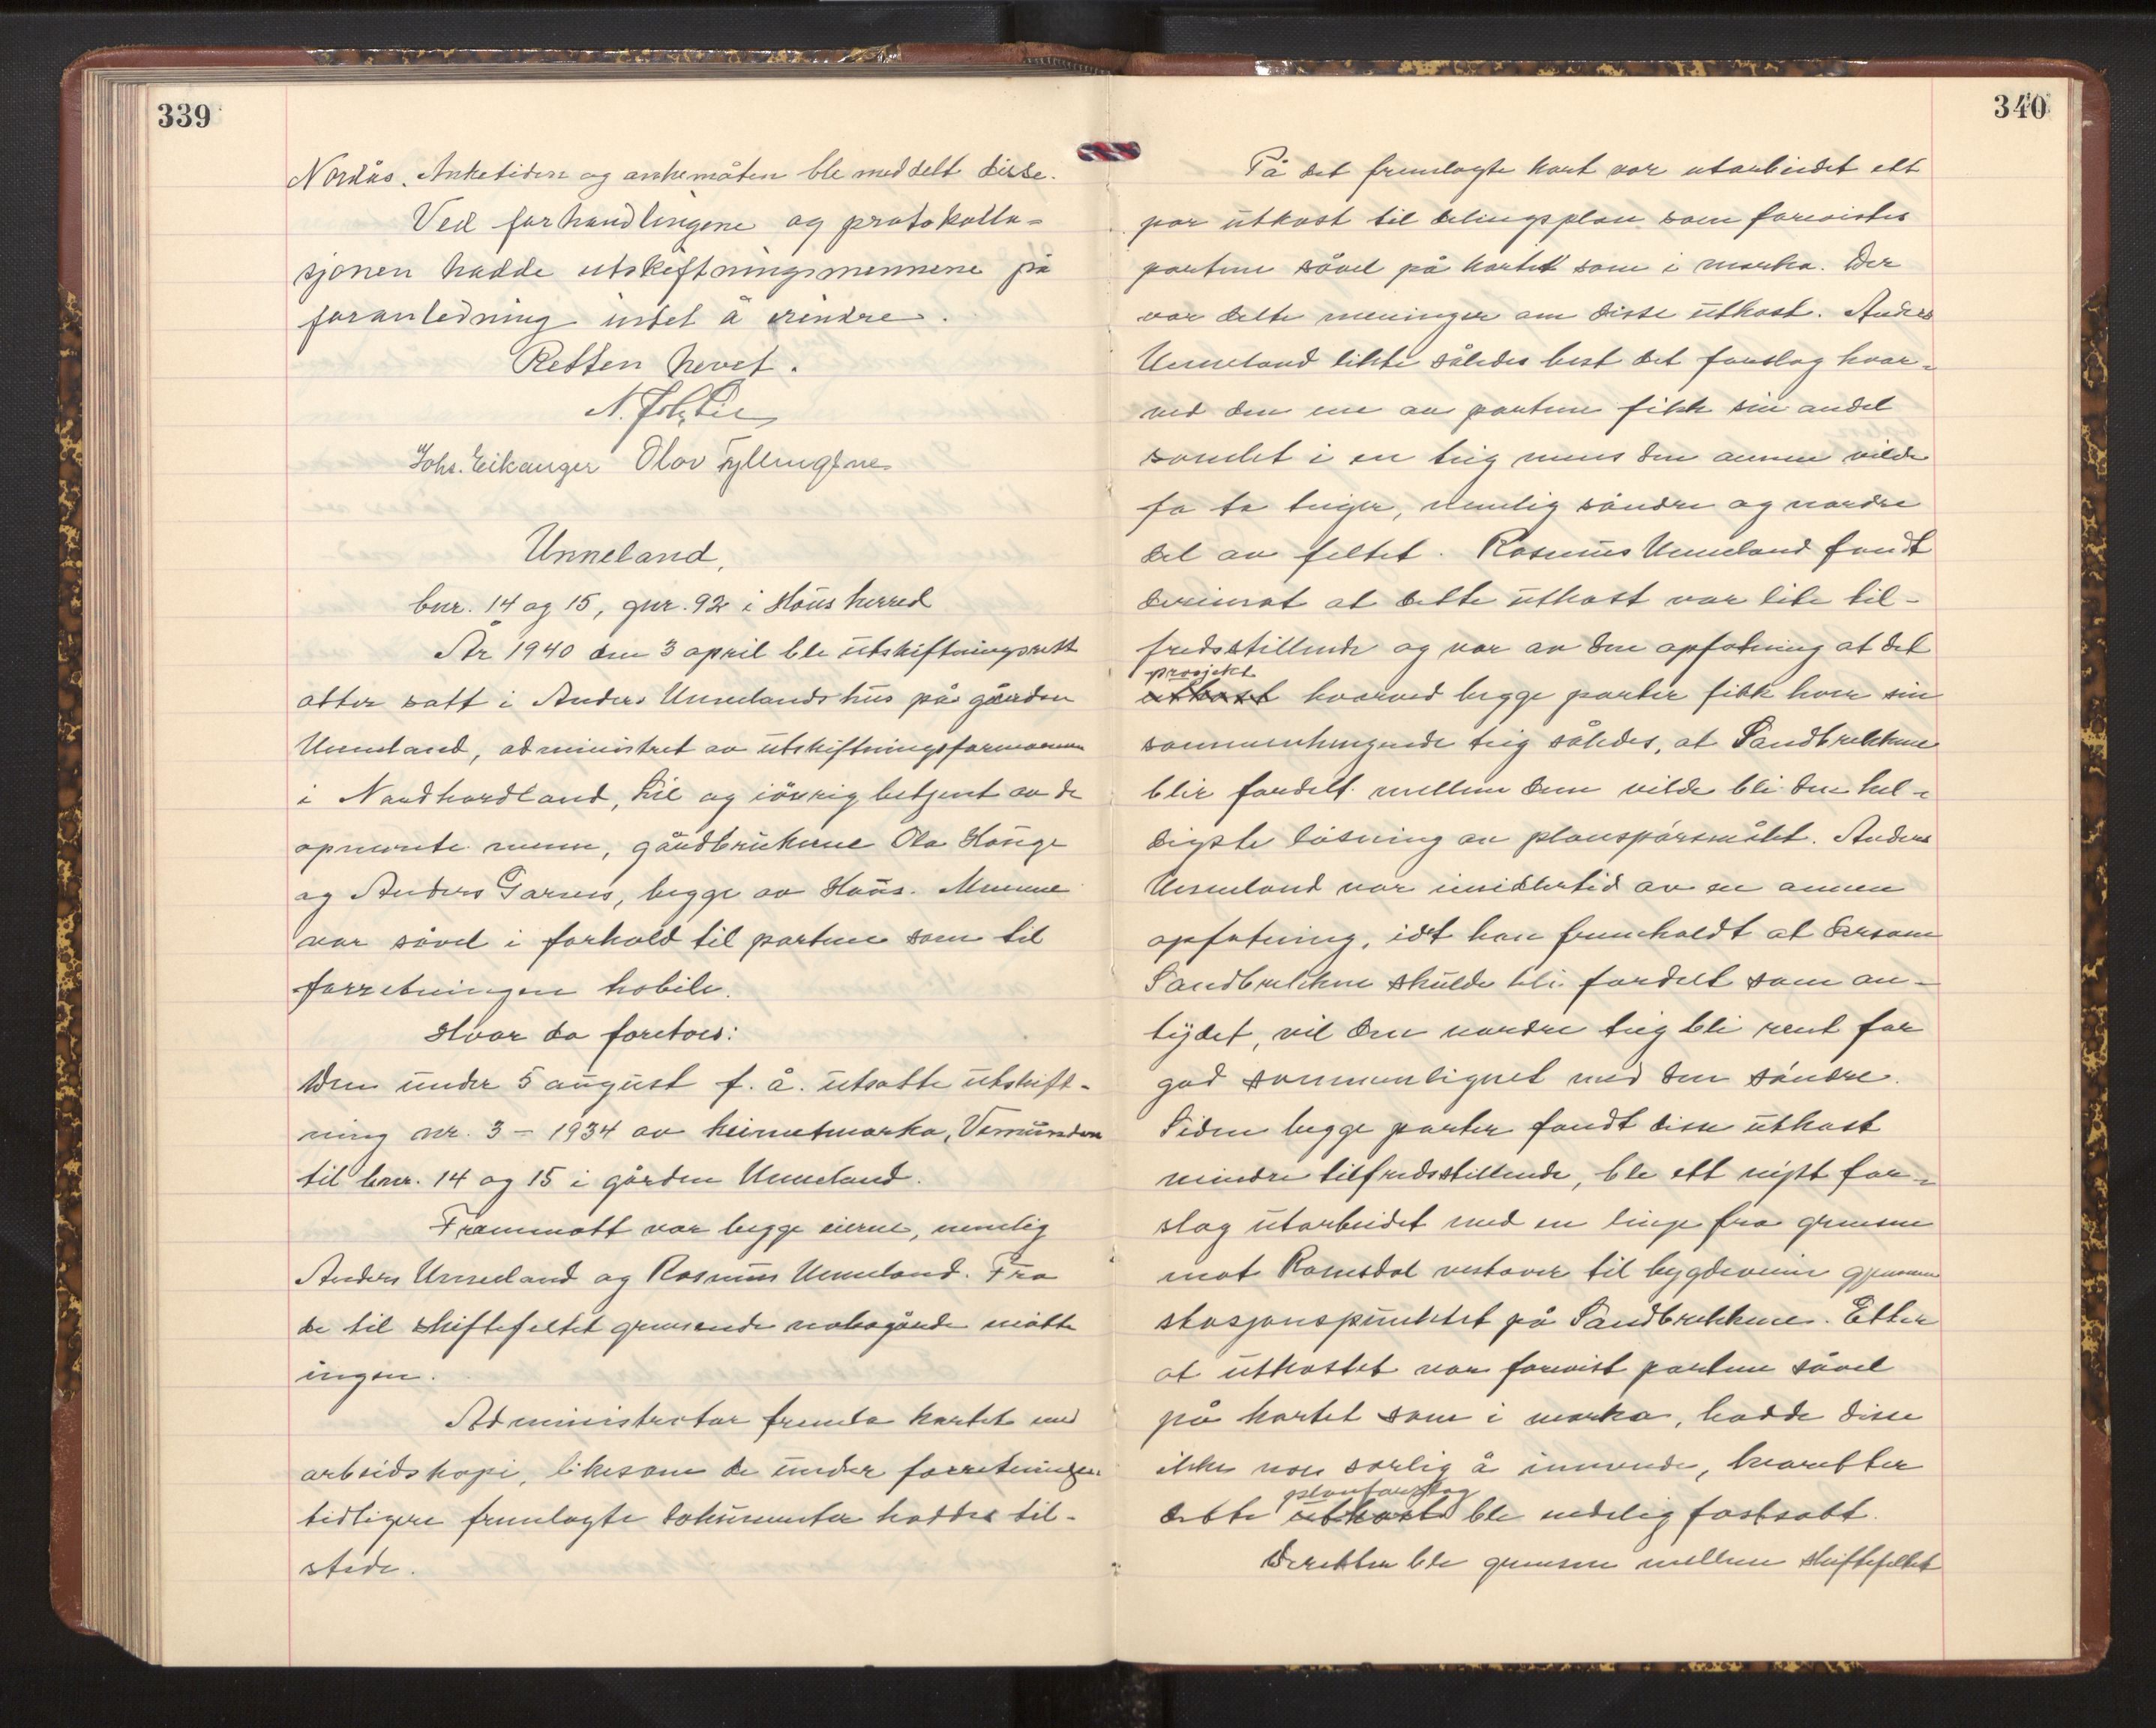 339
Nordås. Anketiden og ankemåten ble meddelt disse.
Ved forhandlingene og protokolla-
sjonen hadde utskiftningsmennene på
foranledning intet å erindre.
Retten hevet.
N. Joh. Lie
Johs. Eikanger Olav Fyllingsnes
Unneland,
bnr. 14 og 15, gnr. 92 i Haus herred
År 1940 den 3 april ble utskiftningsrett
atter satt i Anders Unnelands hus på gården
Unneland, administret av utskiftningsformannen
i Nordhordland, Lie og iövrig betjent av de
opnevnte menn, gårdbrukerne Ola Hauge
og Anders Garnes, begge av Haus. Mennene
var såvel i forhold til partene som til
forretningen habile.
Hvor da foretoes:
Den under 5 august f. å. utsatte utskift-
ning nr. 3 - 1934 av heimemarka, Vemunden
til bnr. 14 og 15 i gården Unneland.
Frammött var begge eierne, nemlig
Anders Unneland og Rasmus Unneland. Fra
de til skiftefeltet grensende nabogårde mötte
ingen.
Administrator fremla kartet med
arbeidskopi, likesom de under forretningen
tidligere fremlagte dokumenter haddes til-
stede.
340
På det fremlagte kart var utarbeidet ett
par utkast til delingsplan som forevistes
partene såvel på kartet som i marka. Der
var delte meninger om disse utkast. Anders
Unneland likte således best det forslag hvor-
ved den ene av partene fikk sin andel
samlet i en teig mens den annen vilde
få to teiger, nemlig söndre og nordre
del av feltet. Rasmus Unneland fandt
derimot at dette utkast var lite til-
fredsstillende og var av den opfatning at det
prosjekt
utkast hvorved begge parter fikk hver sin
sammenhengende teig således, at Sandbrekkene
blir fordelt mellem dem vilde bli den hel-
digste lösning av planspörsmålet. Anders
Unneland var imidlertid av en annen
opfatning, idet han fremholdt at dersom
Sandbrekkene skulde bli fordelt som an-
tydet, vil den nordre teig bli rent for
god sammenlignet med den söndre.
Siden begge parter fandt disse utkast
mindre tilfredsstillende, ble ett nytt for-
slag utarbeidet med en linje fra grensen
mot Romsdal vestover til bygdeveien gjennem
stasjonspunktet på Sandbrekkene. Etter
at utkastet var forevist partene såvel
på kartet som i marka, hadde disse
ikke noe særlig å innvende, hvoretter
planforslag
dette utkast ble endelig fastsatt.
Deretter ble grensen mellem skiftefeltet